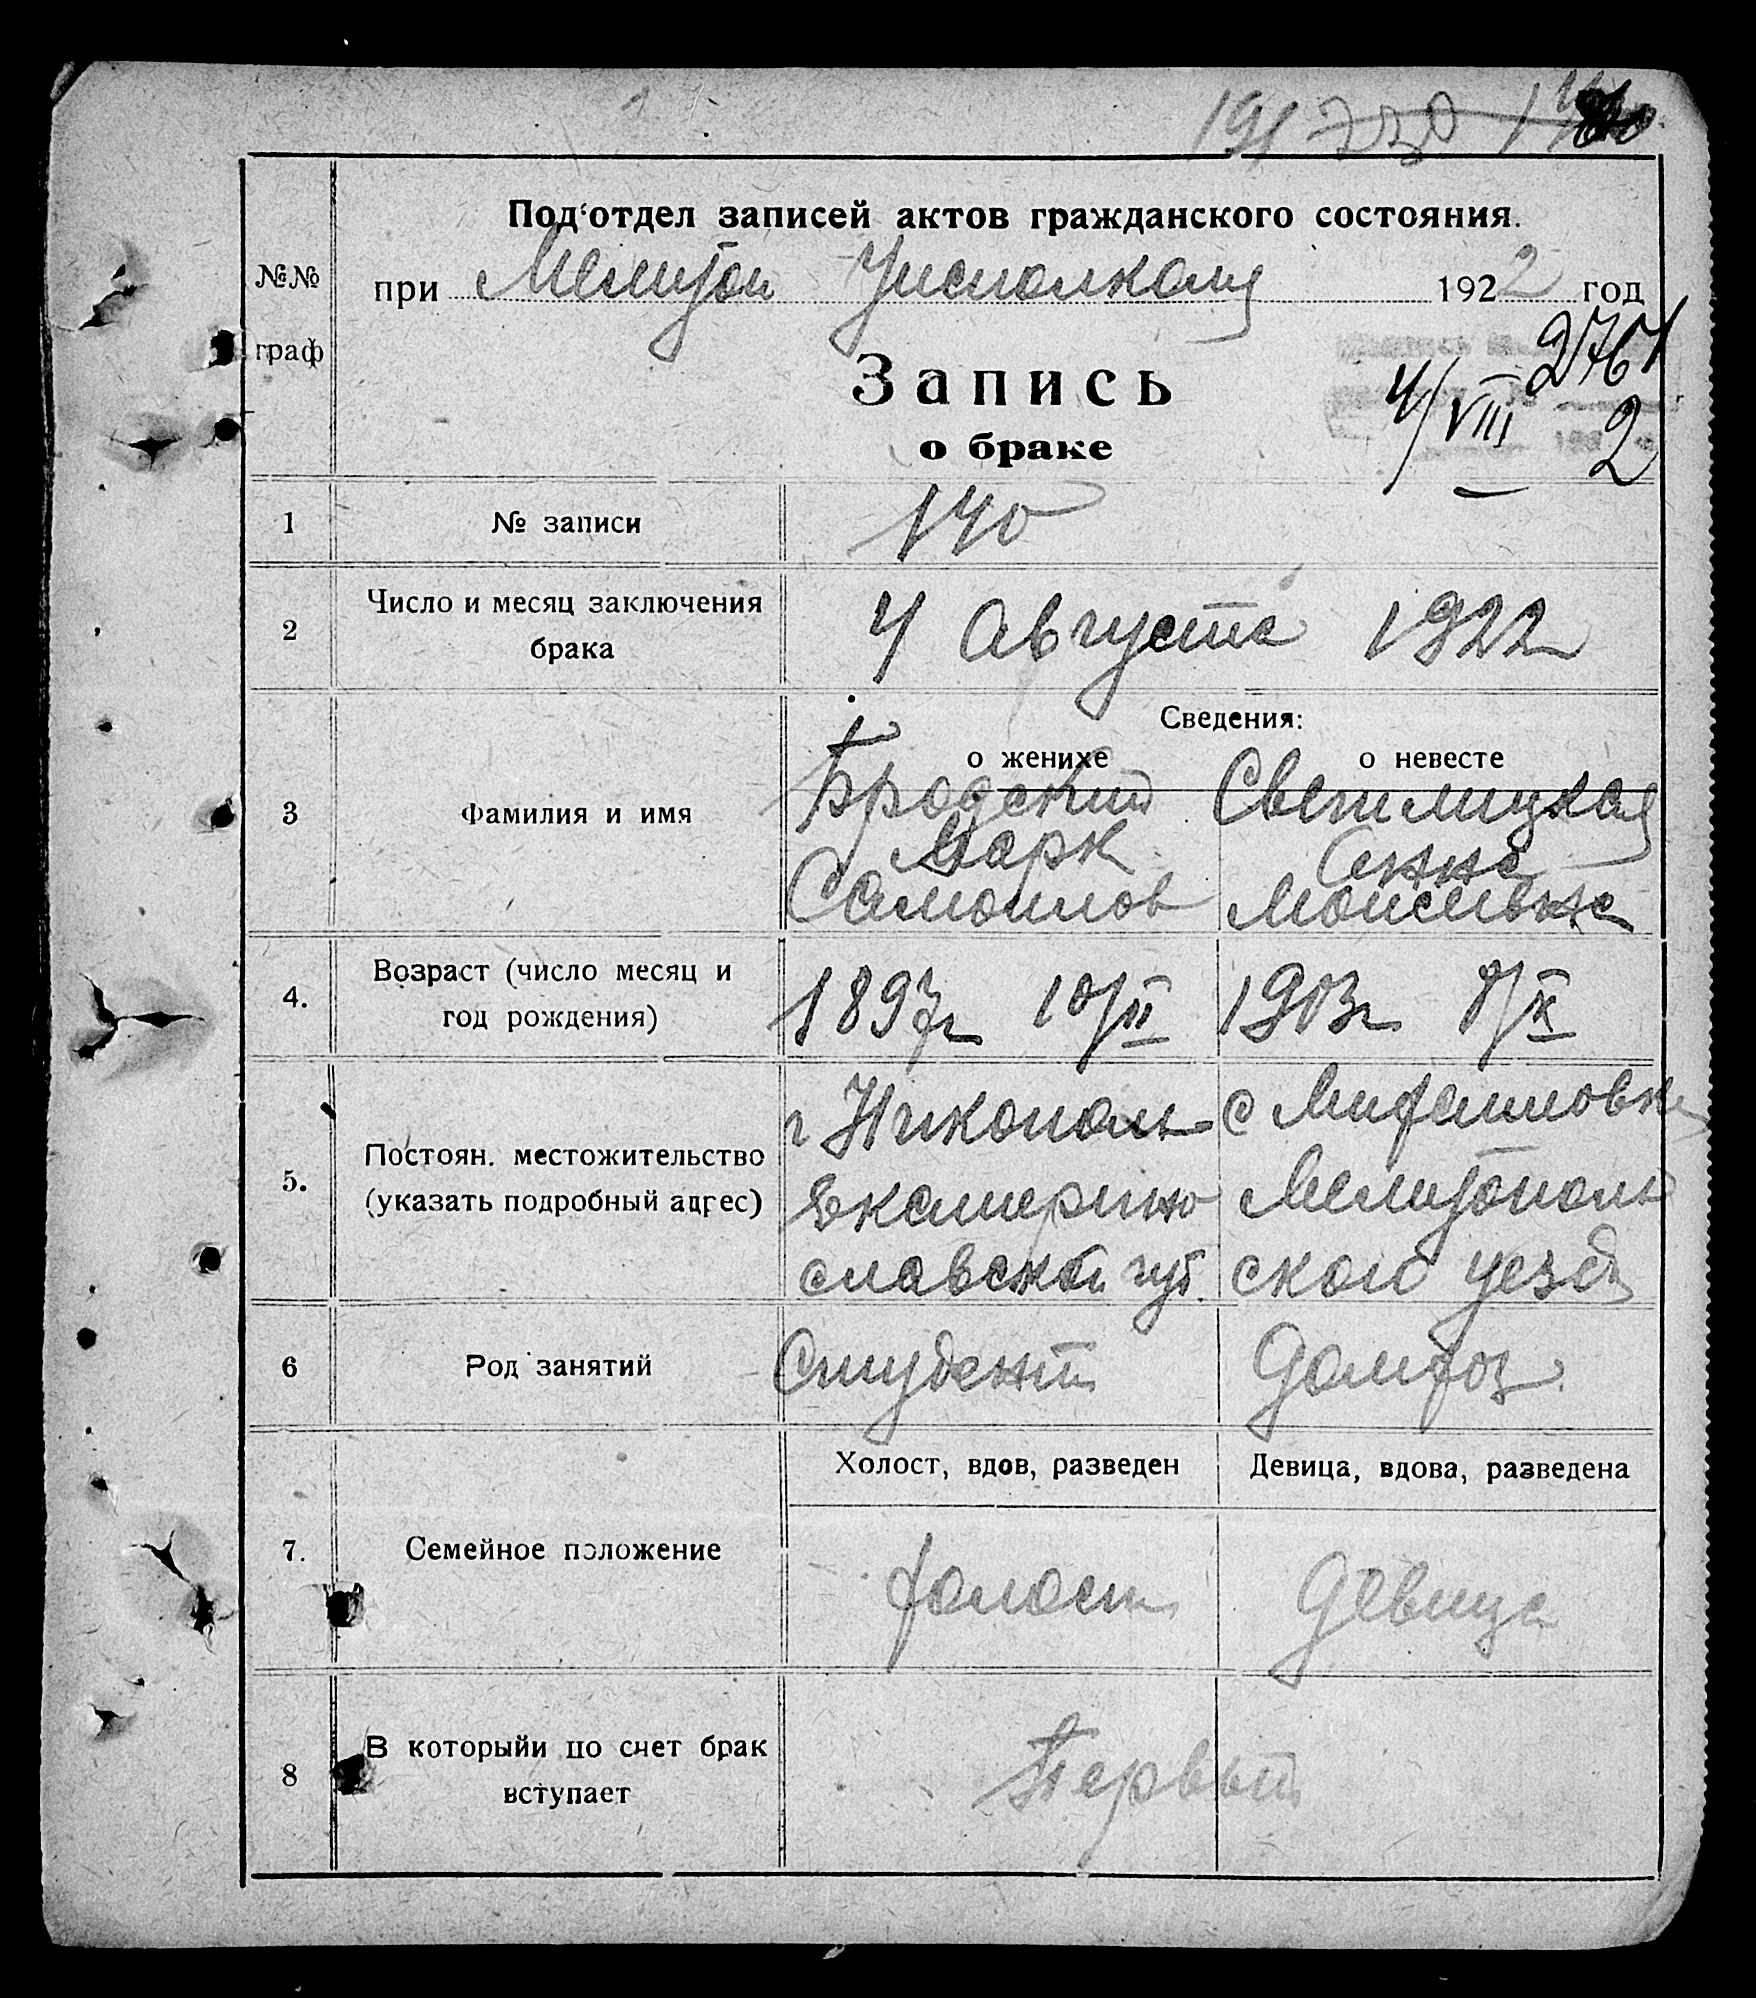 191 730
Под'отдел записей актов гражданского состояния.
№№ граф
при Мелитоп Уисполкома 1922 год
2761
Запись
4/VIII 2
о браке
1 № записи 140
2 Число и месяц заключения брака 4 Августа 1922
Сведения:
о женихе о невесте
3 Фамилия и имя
Бродский Светлицкая
Марк Анна
Самоилов Моисеевна
4. Возраст (число месяц и год рождения) 1897г 10/II 1903г 8/IX
5. Постоян. местожительство (указать подробный адрес)
г Никополь с Михайловка
Екатерино Мелитополь
славской губ. ского уезда
6 Род занятий Студент Домхоз
Холост, вдов, разведен Девица, вдова, разведена
7. Семейное положение холост Девица
8 В которыйи по счет брак вступает Первый